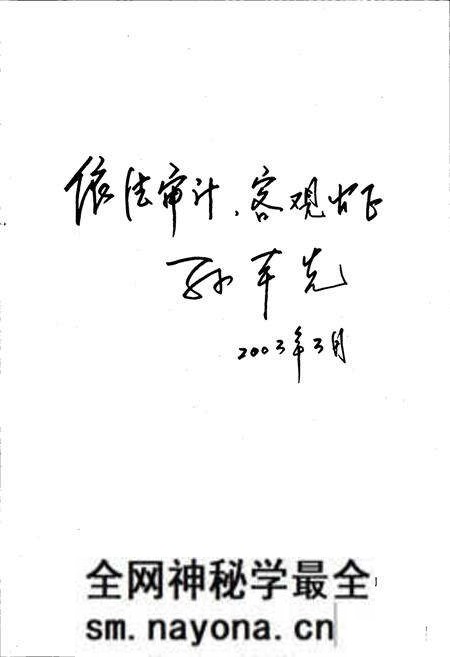 依法审计、客观公正
孙平先
2003年3月
全网神秘学最全
sm.nayona.cn